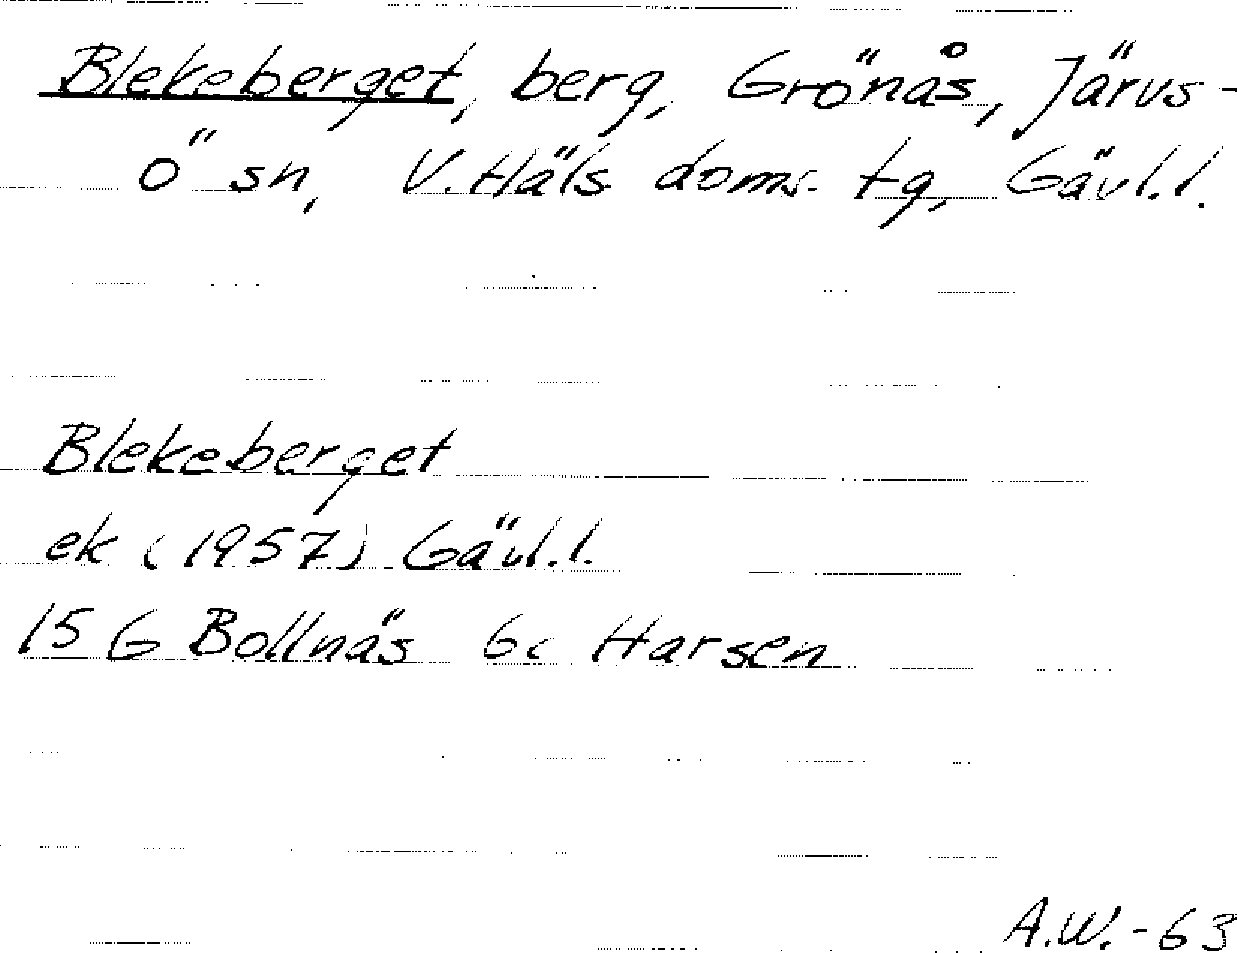 Blekeberget, berg, Grönås, Järvs-
ö sn, V. Häls. doms. tg, Gävl.l.
Blekeberget
ek (1957) Gävl.l.
15 G Bollnäs 6c Harsen
A.W.-63